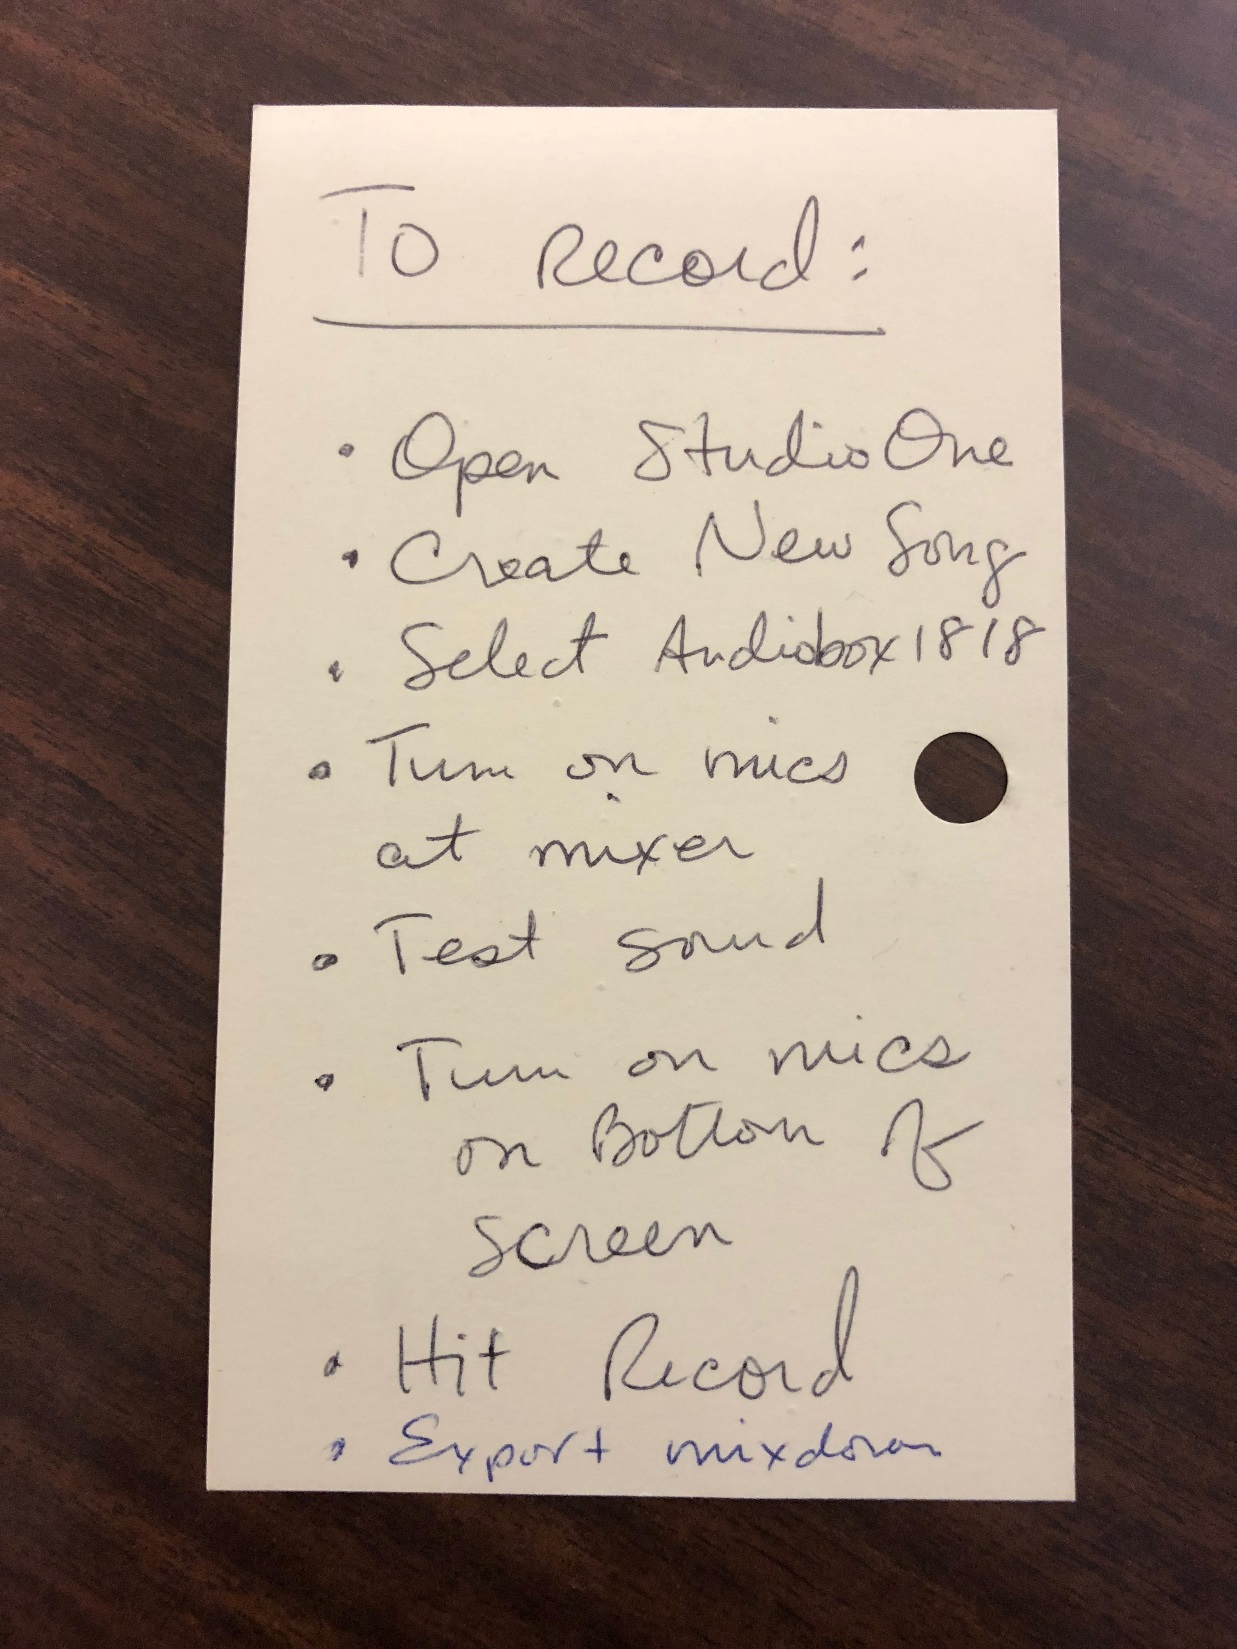 To Record:
• Open StudioOne
• Create New Song
• Select Audiobox1818
• Turn on mics
at mixer
• Test sound
• Turn on mics
on Bottom of
screen
• Hit Record
• Export mixdown